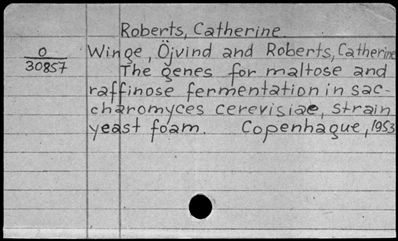 Roberts, Catherine
O
30857
Winge, Öjvind and Roberts, Catherine
The genes for maltose and
raffinose fermentation in sac-
charomyces cerevisiae, strain
yeast foam. Copenhague, 1953